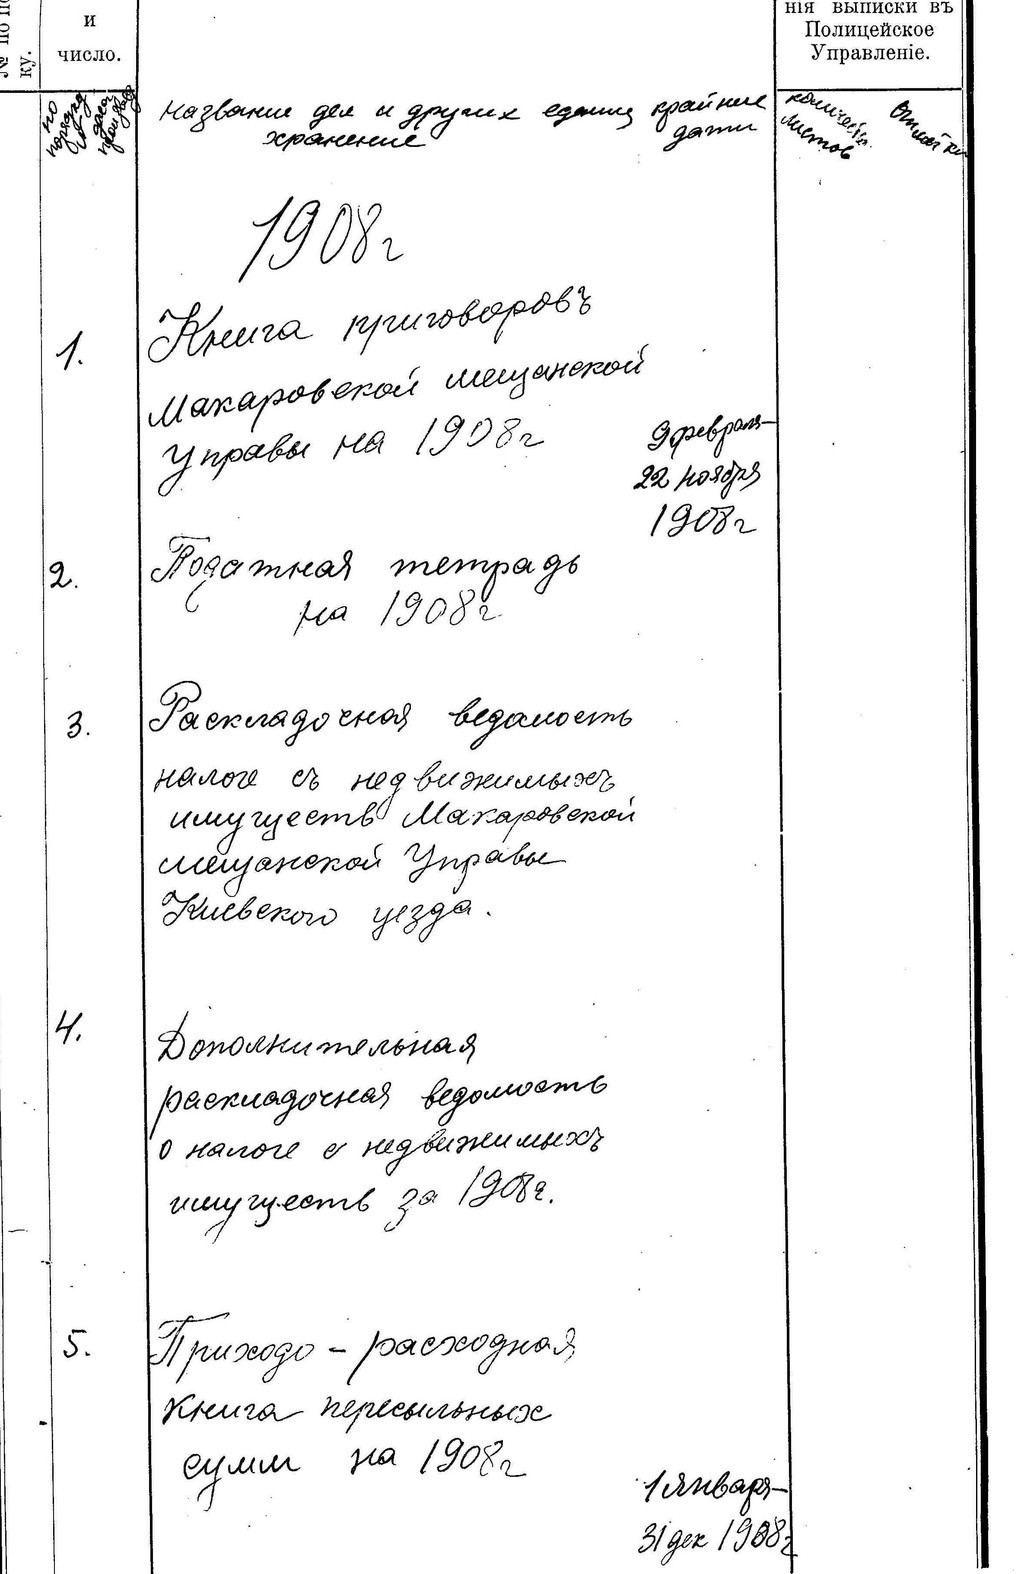 № по по
ку.
и
число.
нія выписки въ
Полицейское
Управленіе.
по
порядку
дела
Название дел и других единиц крайние
хранение даты
количест.
листов
Отметки
1908г
1. Книга приговоровъ
Макаровской мещанской
управы на 1908г
9 февраля-
22 ноября
1908г
2. Податная тетрадь
на 1908г
3. Раскладочная ведомость
налоге съ недвижимыхъ
имуществ Макаровской
мещанской Управы
Киевского уезда.
4. Дополнительная
раскладочная ведомость
о налоге с недвижимыхъ
имуществ за 1908г.
5. Приходо-расходная
Книга пересыльных
сумм на 1908г
1 января-
31 дек 1908г